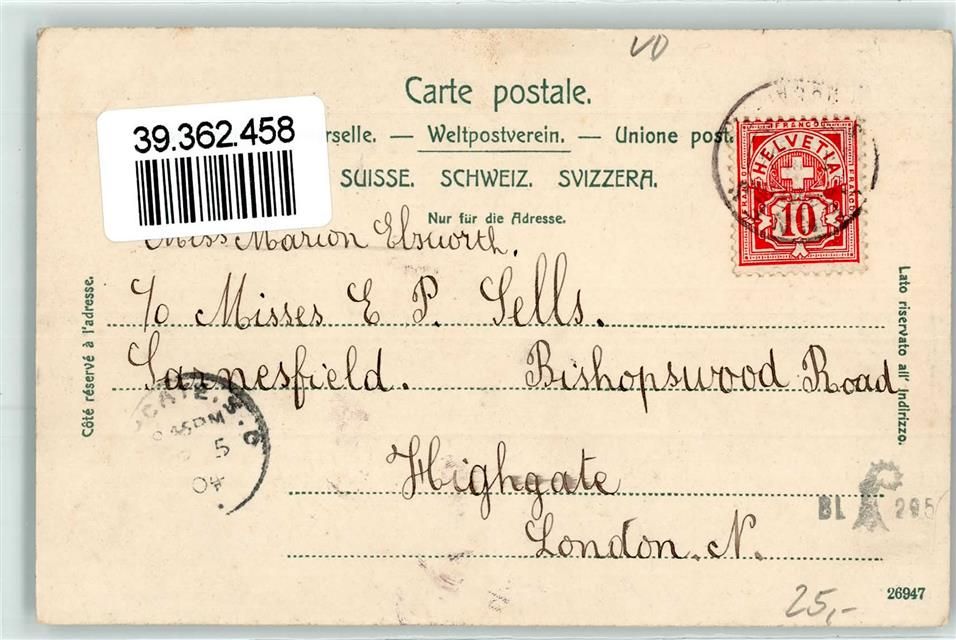 VD
Carte postale.
39.362.458
rselle. — Weltpostverein. — Unione post
SUISSE. SCHWEIZ. SVIZZERA.
Nur für die Adresse.
FRANCO
HELVETIA
10
Miss Marion Elsworth.
c/o Misses E P. Sells.
Sarnesfield. Bishopswood Road
Highgate
London. N.
Côté réservé à l'adresse.
Lato riservato all' indirizzo.
GATE. S.O
PM
5
04
BL 295
25,-
26947